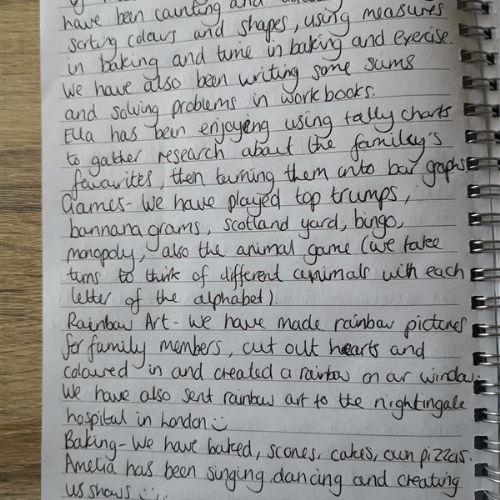 have been counting and
sorting colours and shapes, using measures
in baking and time in baking and exercise.
We have also been writing some sums
and solving problems in workbooks.
Ella has been enjoying using tally charts
to gather research about the familey's
favourites, then turning them into bar graphs.
Games- We have played top trumps,
bannana grams, scotland yard, bingo,
monopoly, also the animal game (we take
turns to think of different animals with each
letter of the alphabet).
Rainbow Art- We have made rainbow pictures
for family members, cut out hearts and
coloured in and created a rainbow on our window.
We have also sent rainbow art to the nightingale
hospital in London
Baking- We have baked, scones, cakes, own pizzas.
Amelia has been singing, dancing and creating
us shows